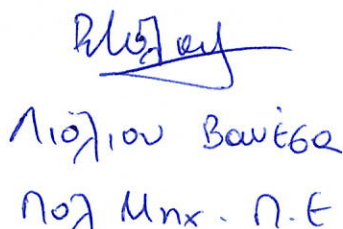 Λιόλιου Βανέσα
Πολ Μηχ. Π.Ε